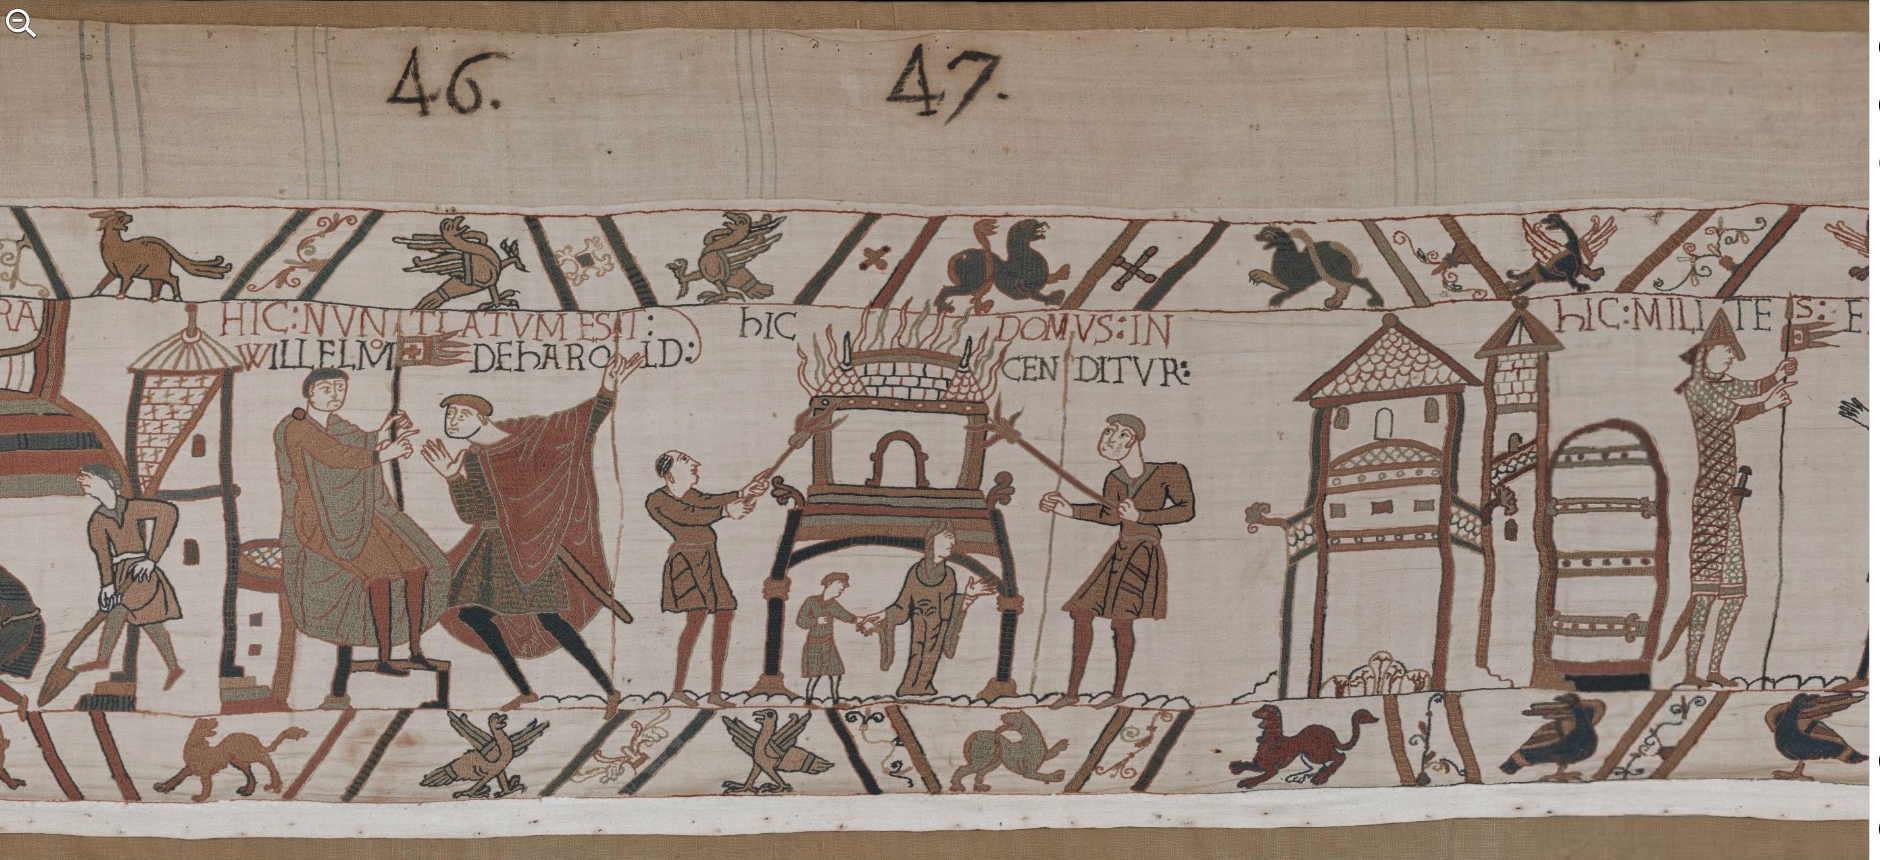 46.
47.
RA
HIC:NVNTIATVM EST:
WILLELMO
DE hAROLD:
hIC
DOMVS:IN
CENDITVR:
hIC:MILITES: E